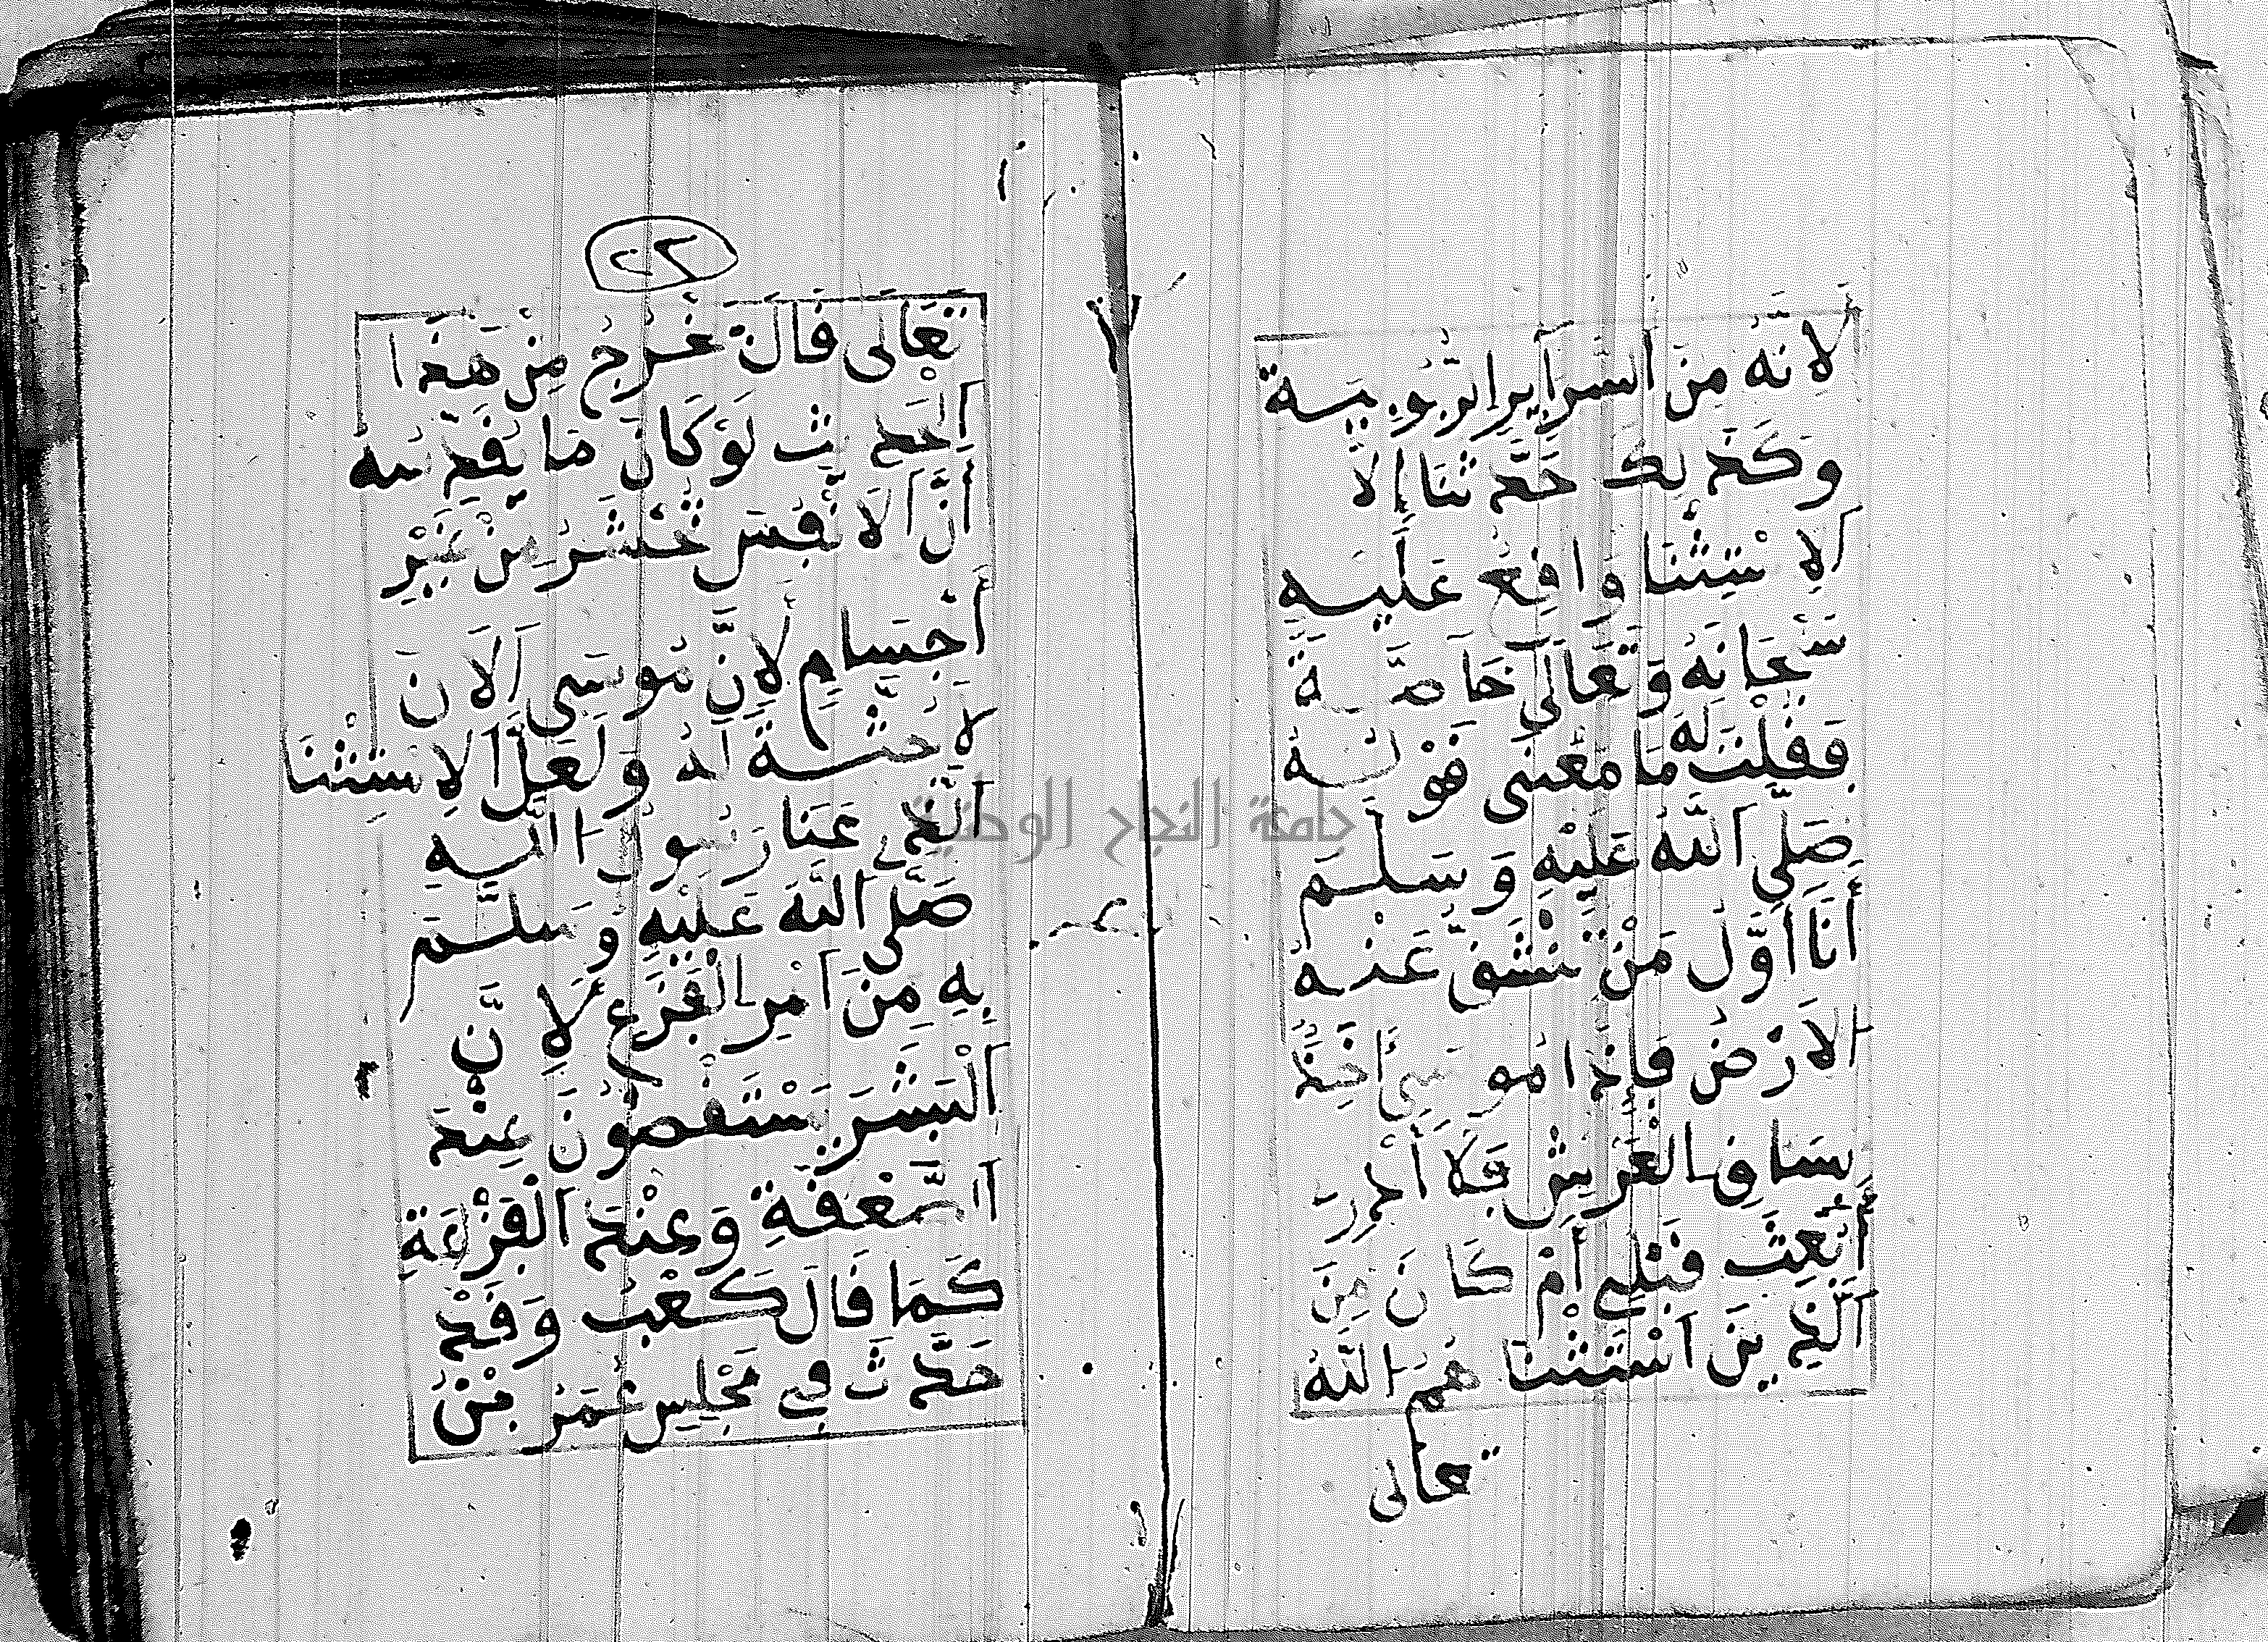 لِأَنَّهُ مِنْ أَسْرَارِ الرُّبُوبِيَّة
وَكَذَلِكَ حَدَّثَنَا إِلَّا
الِاسْتِثْنَا وَاقِعٌ عَلَيْهِ
سُبْحَانَهُ وَتَعَالَى خَاصَّةً
فَقُلْتُ لَهُ مَا مَعْنَى قَوْلِهِ
صَلَّى اللَّهُ عَلَيْهِ وَسَلَّمَ
أَنَا أَوَّلُ مَنْ تَنْشَقُّ عَنْهُ
الْأَرْضُ فَإِذَا مُوسَى أَخَذَ
بِسَاقِ الْعَرْشِ فَلَا أَدْرِ
أَبُعِثَ قَبْلِي أَمْ كَانَ مِنَ
الَّذِينَ اسْتَثْنَاهُمُ اللَّهُ
تعالى
٢٢
تَعَالَى قَالَ خَرَجَ مِنْ هَذَا
الْحَدِيثِ لَوْ كَانَ مَا نُقَدِّسُهُ
أَنَّ الْأَنْفُسَ تُحْشَرُ مِنْ غَيْرِ
أَجْسَامٍ لِأَنَّ مُوسَى الْآنَ
لَا جُثَّةَ لَهُ وَلَعَلَّ الِاسْتِثْنَا
الَّذِي عَنَا رَسُولُ اللَّهِ
صَلَّى اللَّهُ عَلَيْهِ وَسَلَّمَ
بِهِ مِنْ أَمْرِ الْفَزَعِ لِأَنَّ
الْبَشَرَ يَسْتَقْصُونَ عِنْدَ
الصَّعْقَةِ وَعِنْدَ الْفَزْعَةِ
كَمَا قَالَ كَعْبٌ وَقَدْ
حَدَّثَ فِي مَجْلِسِ عُمَرَ بْنُ
جامعة النجاح الوطنية